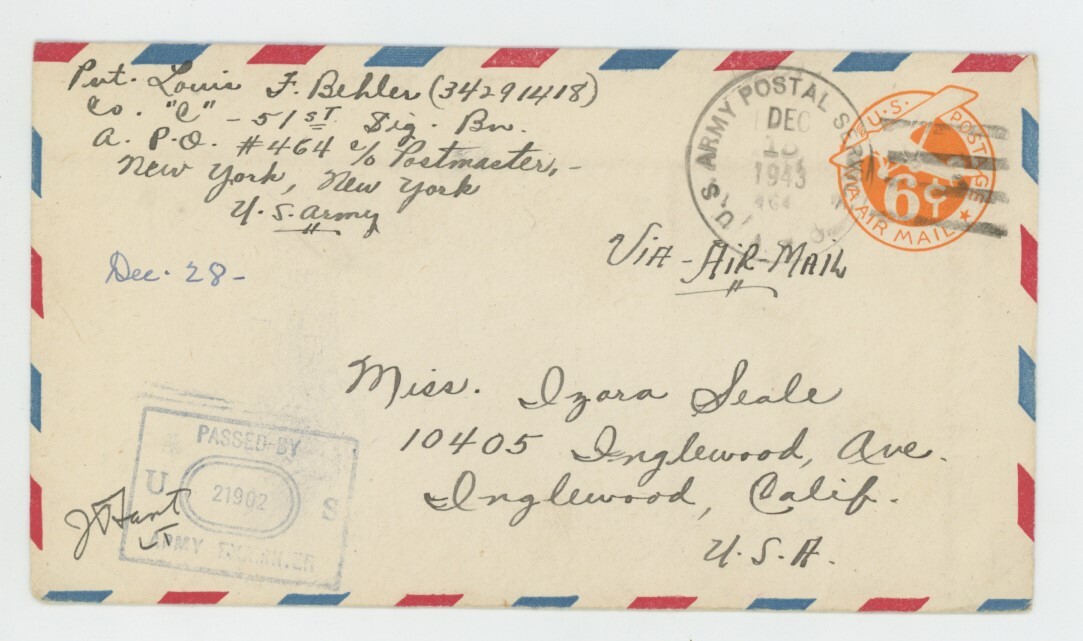 Pvt. Louis F. Behler (34291418)
Co. "C" - 51st Sig. Bn.
A. P.O. #464 c/o Postmaster, -
New York, New York
U.S. Army
Dec. 28-
U.S. ARMY POSTAL SERVICE
DEC
1943
U.S. POSTAGE
6¢
VIA AIR MAIL
VIA-AIR-MAIL
Miss. Izora Seale
10405 Inglewood, Ave.
Inglewood, Calif.
U.S.A.
PASSED BY
U 21902 S
ARMY EXAMINER